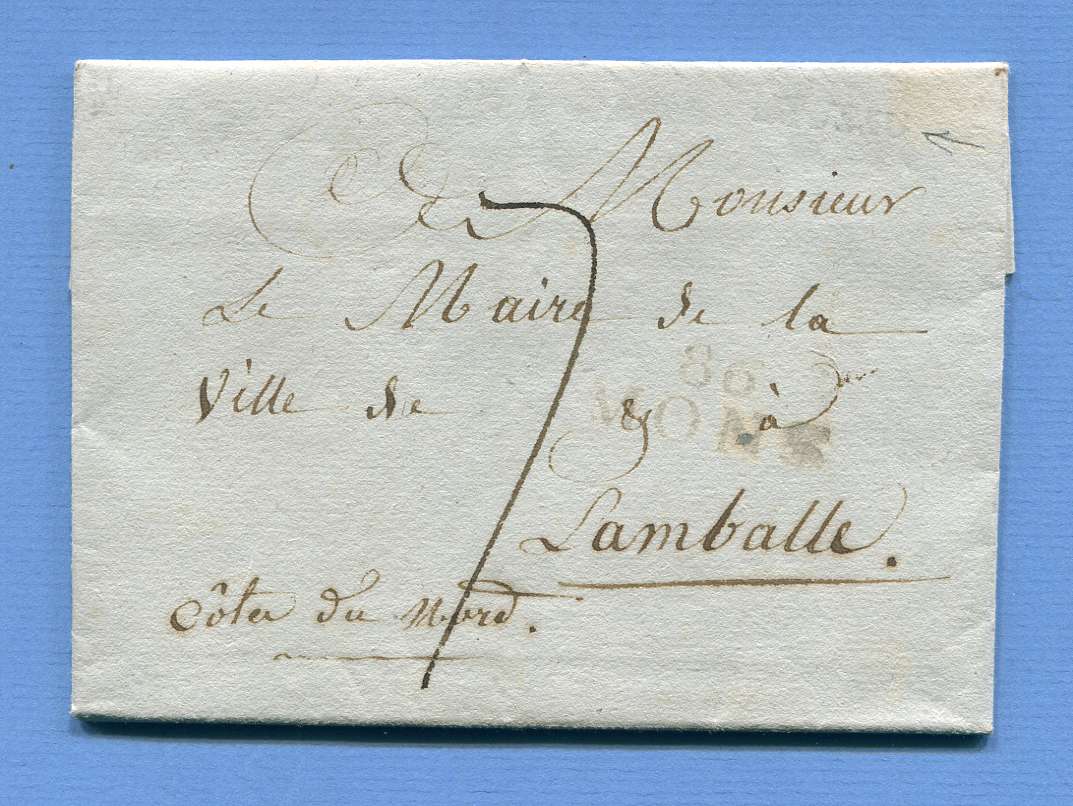 A Monsieur
Le Maire de la
Ville de & à
Lamballe.
Côtes du Nord.
7